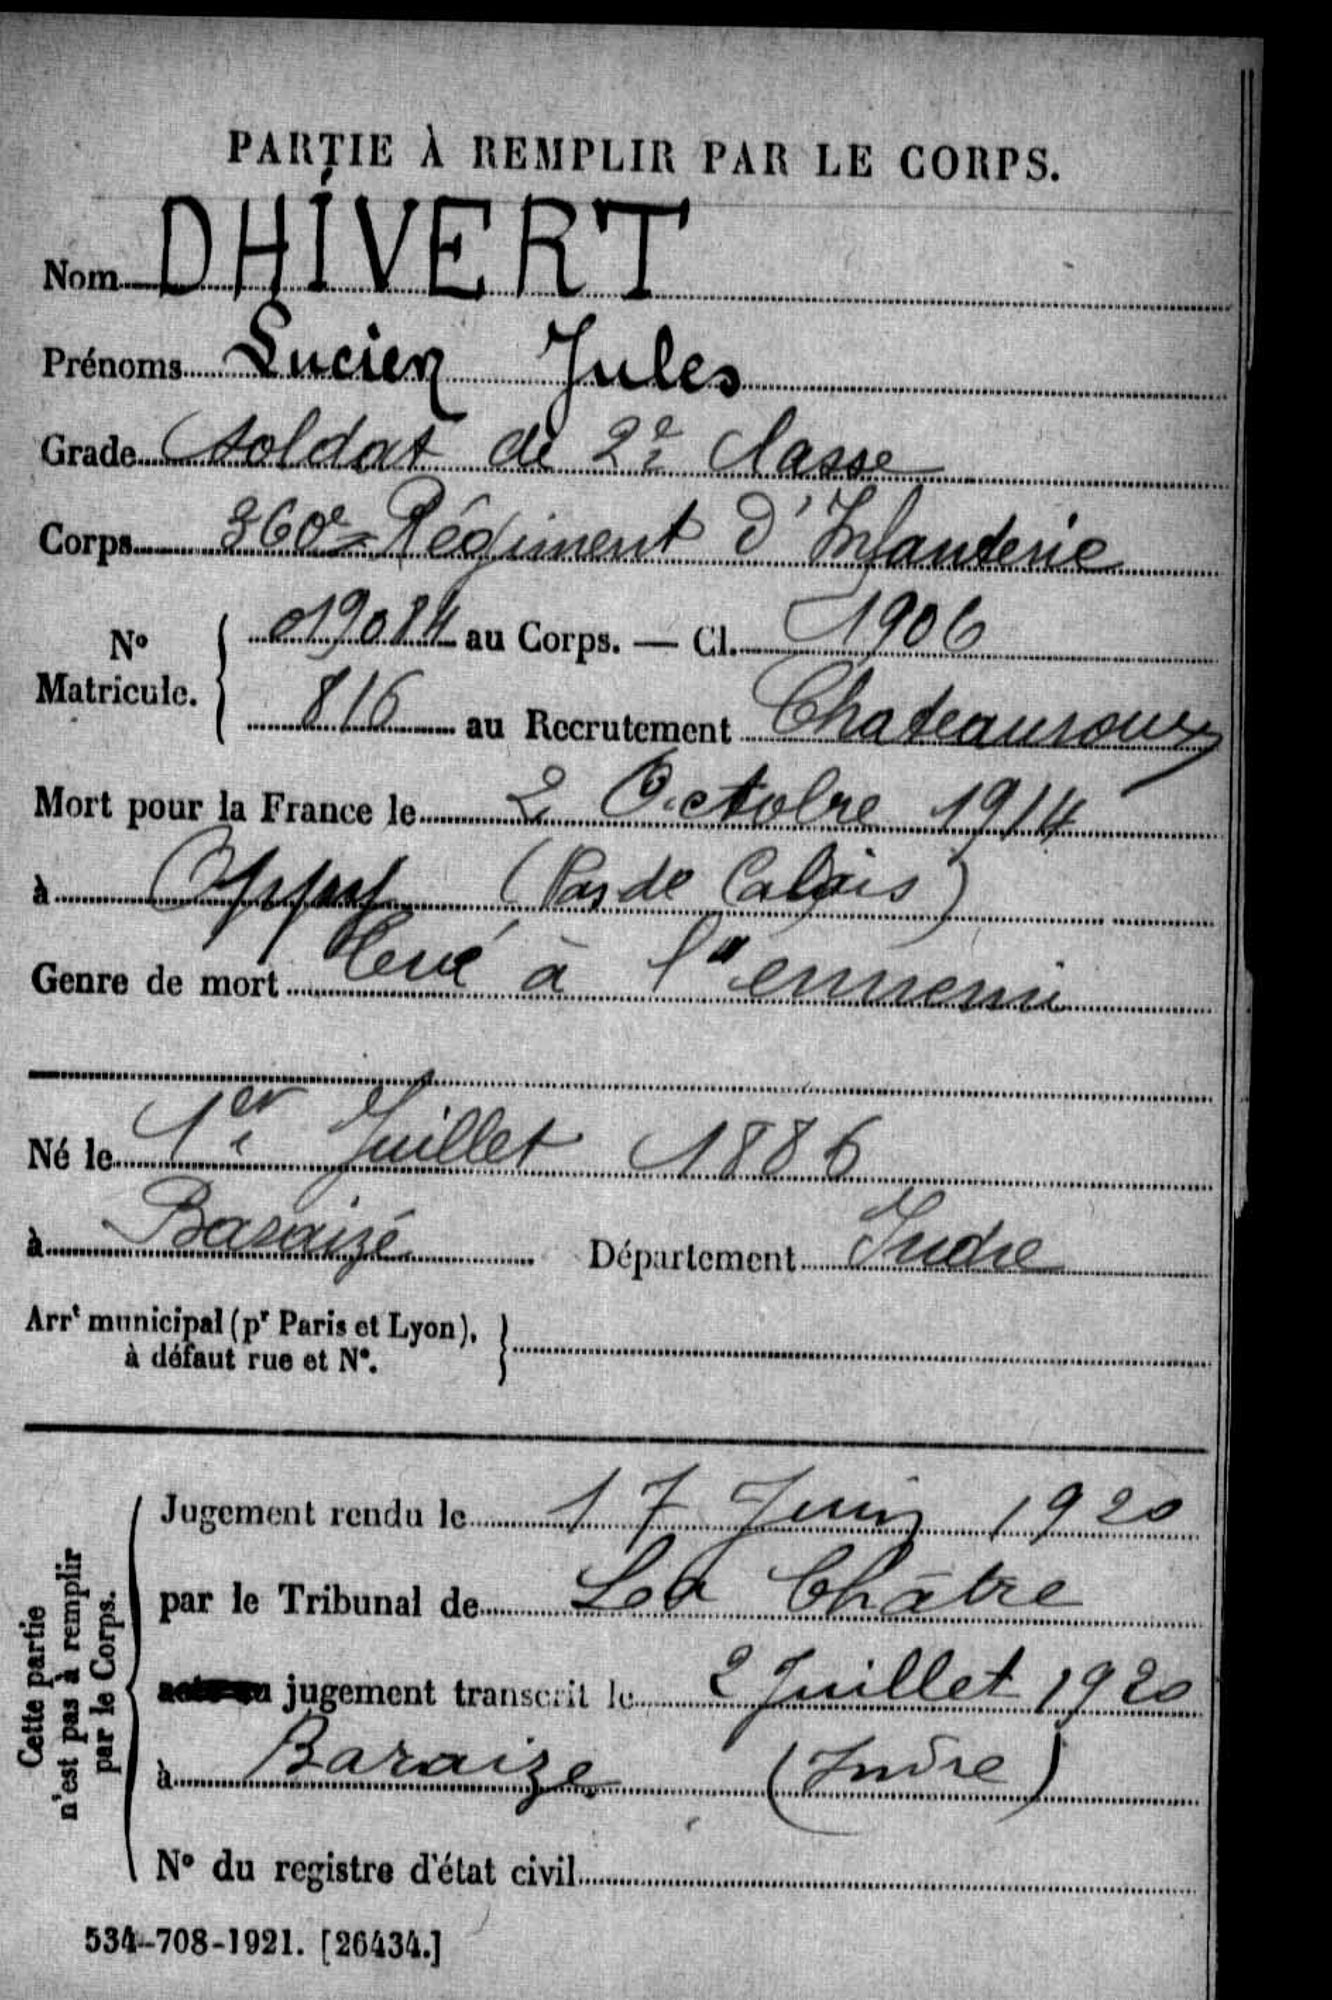 PARTIE À REMPLIR PAR LE CORPS.
Nom DHIVERT
Prénoms Lucien Jules
Grade Soldat de 2e Classe
Corps 360e Régiment d'Infanterie
No Matricule. { 019084 au Corps. — Cl. 1906
816 au Recrutement Chateauroux
Mort pour la France le 2 Octobre 1914
à Oppy (Pas de Calais)
Genre de mort Tué à l'ennemi
Né le 1er Juillet 1886
à Baraize Département Indre
Arrt municipal (pr Paris et Lyon), }
à défaut rue et No.
Cette partie
n'est pas à remplir
par le Corps.
Jugement rendu le 17 Juin 1920
par le Tribunal de La Châtre
jugement transcrit le 2 Juillet 1920
à Baraize (Indre)
No du registre d'état civil
534-708-1921. [26434.]